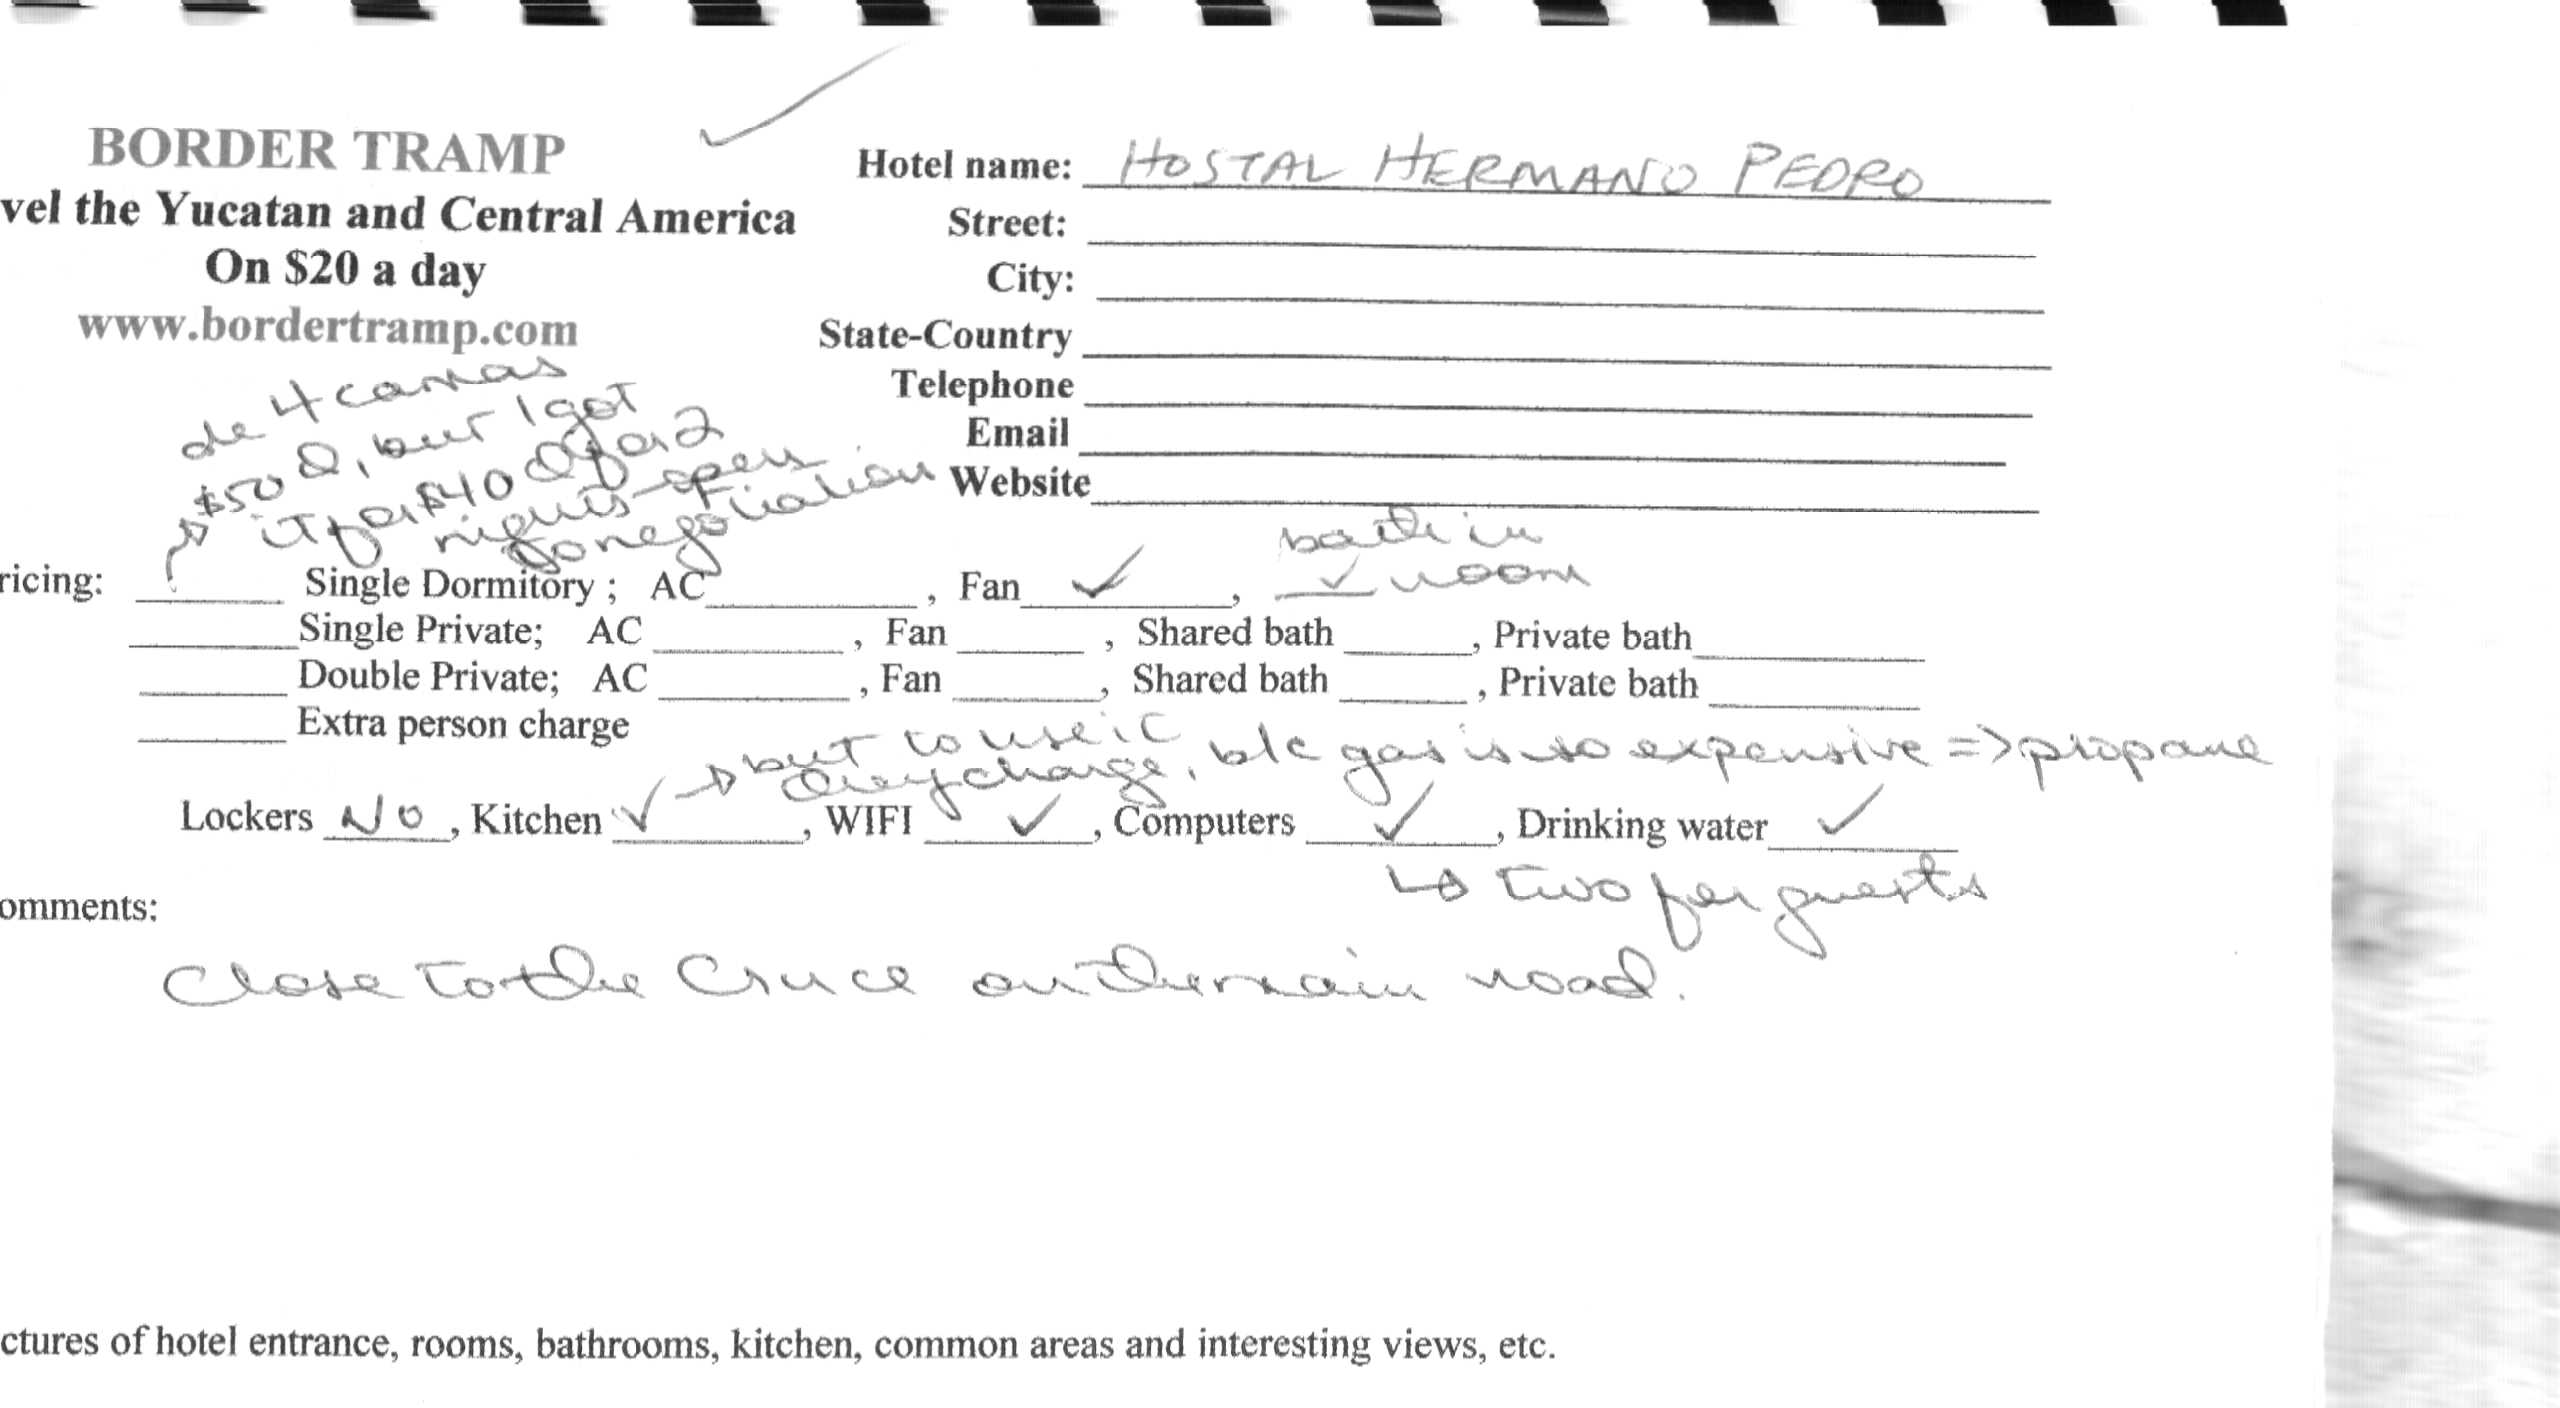 BORDER TRAMP
vel the Yucatan and Central America
On $20 a day
www.bordertramp.com
Hotel name: HOSTAL HERMANO PEDRO
Street:
City:
State-Country
Telephone
Email
Website
de 4 camas
$50 Q, but I got
it for $40 Q for 2
nights - open
to negotiation
bath in
room
ricing: Single Dormitory ; AC , Fan ✓ , ✓
Single Private; AC , Fan , Shared bath , Private bath
Double Private; AC , Fan , Shared bath , Private bath
Extra person charge
but to use it
they charge, b/c gas is so expensive => propane
Lockers NO , Kitchen ✓ , WIFI ✓ , Computers ✓ , Drinking water ✓
two for guests
omments:
Close to the Cruce on the main road.
ctures of hotel entrance, rooms, bathrooms, kitchen, common areas and interesting views, etc.